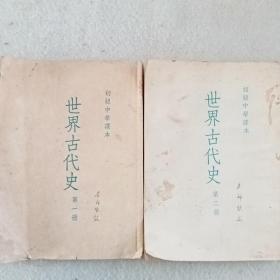 初級中學課本
世界古代史
第一冊
初級中學課本
世界古代史
第二冊